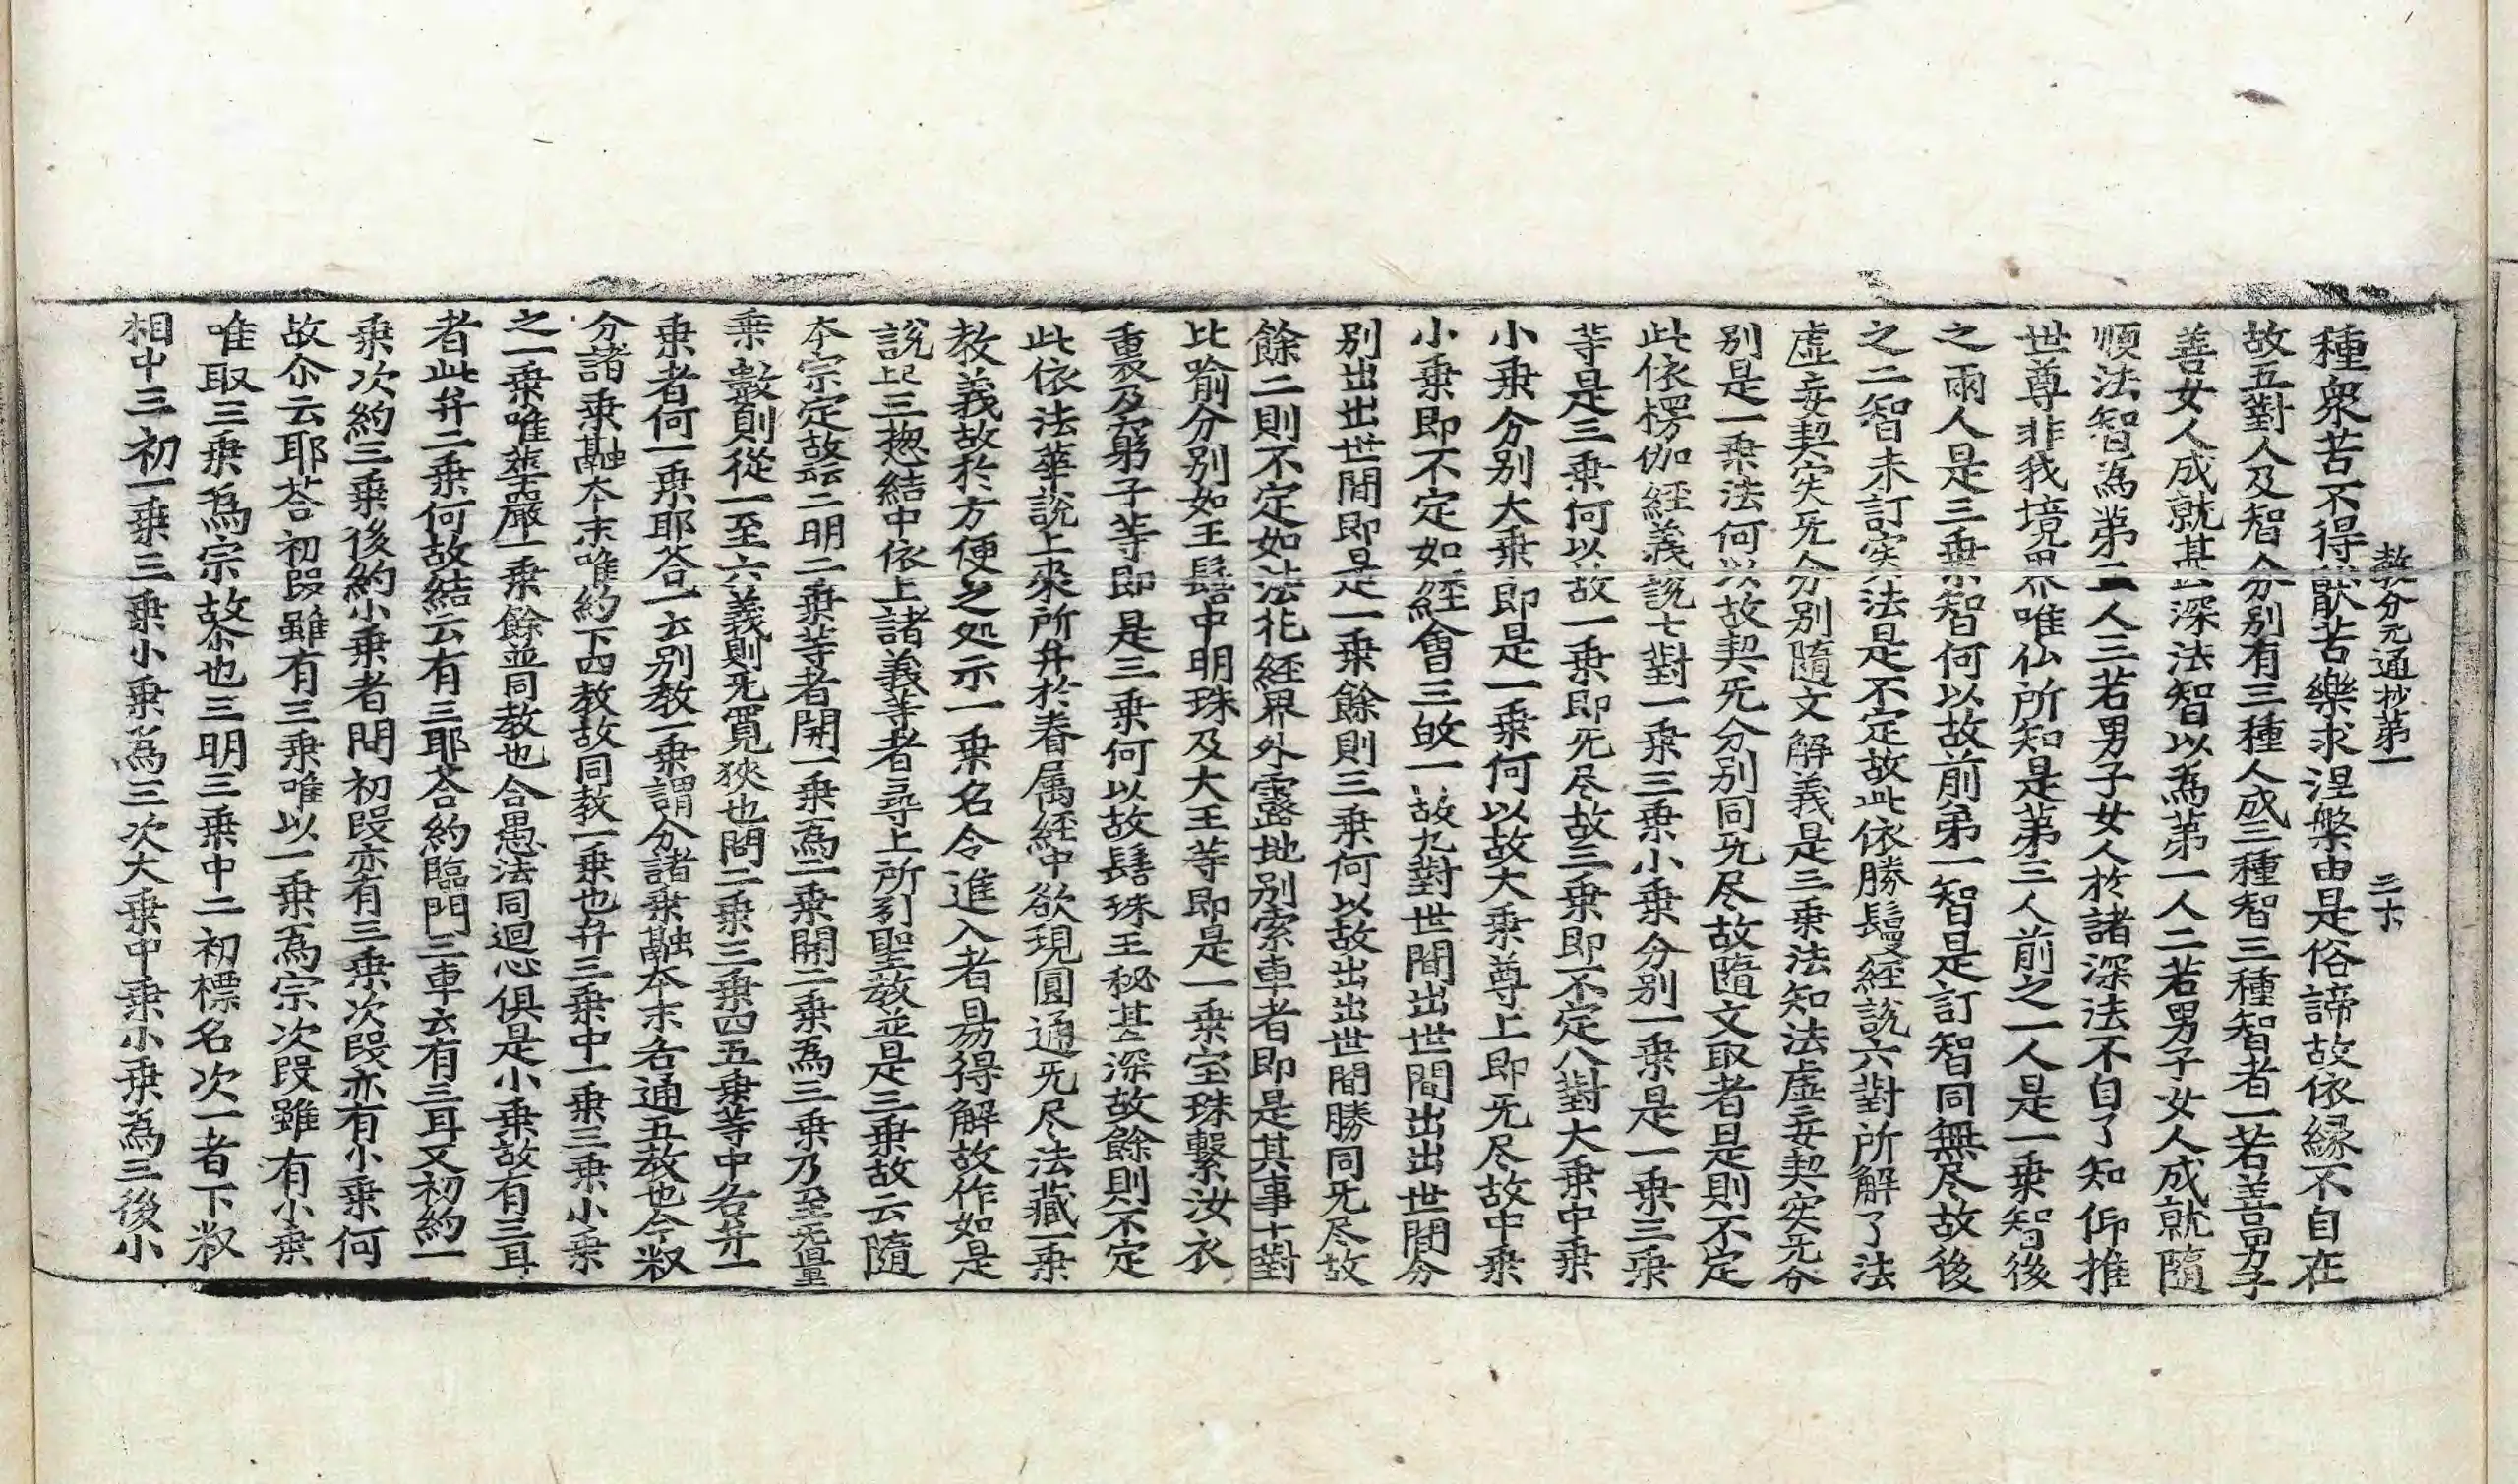 教分元通抄第一　三十
種衆苦不得猒苦樂求涅槃由是俗諦故依縁不自在
故五對人及智分別有三種人成三種智三種智者一若善男子
善女人成就甚深法智以爲第一人二若男子女人成就隨
順法智爲第二人三若男子女人於諸深法不自了知仰推
世尊非我境界唯仏所知是第三人前之一人是一乗智後
之兩人是三乗智何以故前第一智是訂智同無尽故後
之二智未訂実法是不定故此依勝鬘經說六對所解了法
虛妄契実旡分別隨文解義是三乗法知法虛妄契実旡分
別是一乗法何以故契旡分別同旡尽故隨文取者是則不定
此依楞伽經義說七對一乗三乗小乗分別一乗是一乗三乗
等是三乗何以故一乗即旡尽故三乗即不定八對大乗中乗
小乗分別大乗即是一乗何以故大乗尊上即旡尽故中乗
小乗即不定如經會三故一故九對世間出世間出出世間分
別出出世間即是一乗餘則三乗何以故出出世間勝同旡尽故
餘二則不定如法花經界外露地別索車者即是其事十對
比喻分別如王髻中明珠及大王等即是一乗宝珠繫汝衣
裏及窮子等即是三乗何以故髻珠王秘甚深故餘則不定
此依法華說上來所弁於眷属経中欲現圓通旡尽法藏一乗
教義故於方便之処示一乗名令進入者易得解故作如是
說上已三揔結中依上諸義等者尋上所引聖教並是三乗故云隨
本宗定故云云二明二乗等者開一乗爲二乗開二乗爲三乗乃至旡量
乗數則從一至六義則旡寬狹也問二乗三乗四五乗等中各弁一
乗者何一乗耶荅一云別教一乗謂分諸乗融本末各通五教也今釈
分諸乗融本末唯約下四教故同教一乗也弁三乗中一乗三乗小乗
之一乗唯華嚴一乗餘並同教也合愚法同迴心俱是小乗故有三耳
者此弁二乗何故結云有三耶荅約臨門三車云有三耳又初約一
乗次約三乗後約小乗者問初段亦有三乗次段亦有小乗何
故尒云耶荅初段雖有三乗唯以一乗爲宗次段雖有小乗
唯取三乗爲宗故尒也三明三乗中二初標名次一者下釈
相中三初一乗三乗小乗爲三次大乗中乗小乗爲三後小